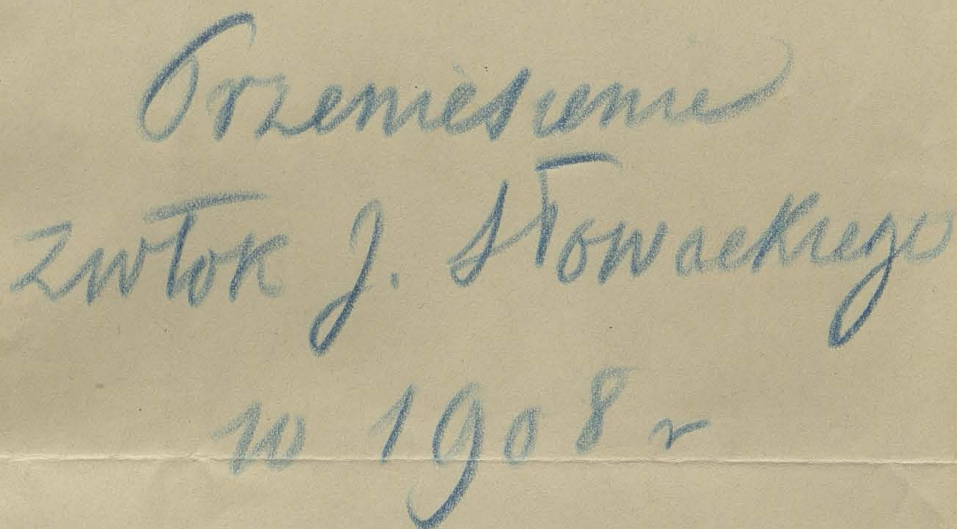 Przeniesienie
zwłok J. Słowackiego
w 1908 r